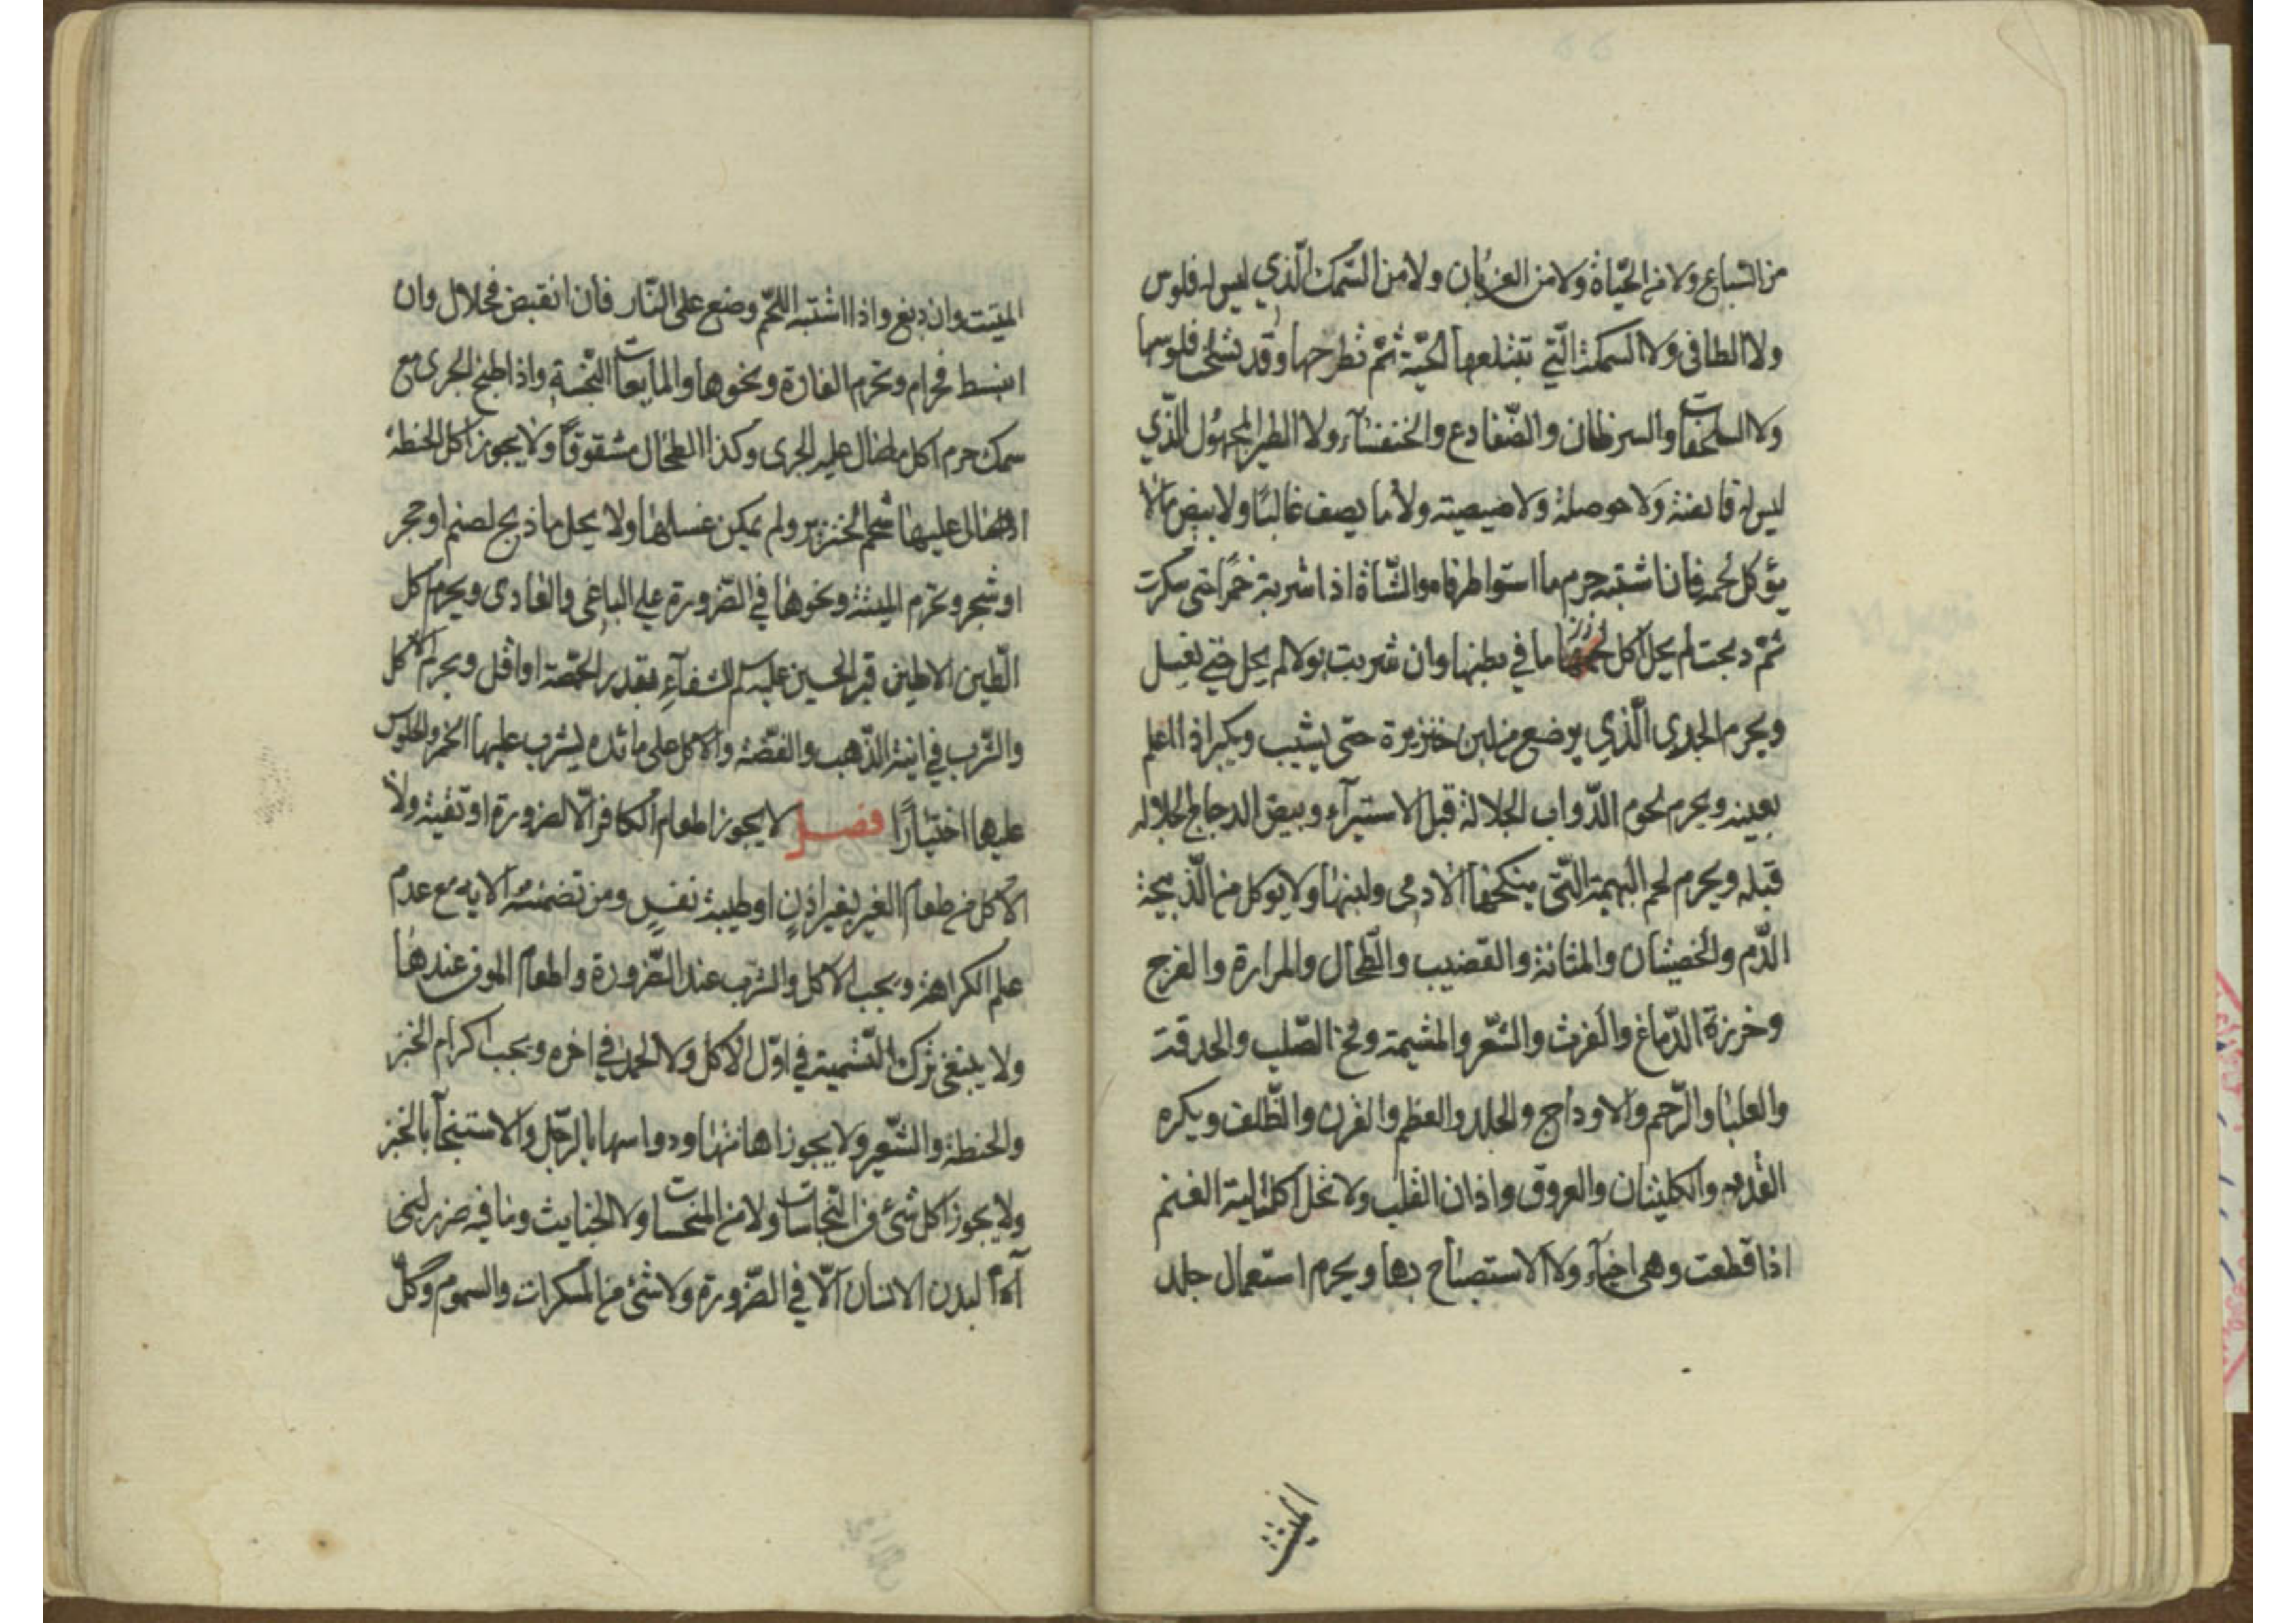 من السباع ولا من الحيّاة ولا من الغربان ولا من السّمك الّذي ليس له فلوس
ولا الطافى ولا السمكة الّتي تبتلعها الحيّة ثمّ تطرحها وقد تسلخ فلوسها
ولا السلحفات والسرطان والضّفادع والخنفساء ولا الطير المجهول الّذي
ليس له قانصة ولا حوصلة ولا صيصية ولا ما يصف غالبًا ولا بيض ما لا
يؤكل لحمه فان اشتبه حرم ما استوا طرفاه والشّاة اذا شربة خمرًا حتى سكرت
ثمّ ذبحت لم يحل اكل ما في بطنها وان شربت بولا لم يحل حتى يغسل
ويحرم الجدى الّذي يرضع من لبن خنزيرة حتّى يشيب ويكبر اذا علم
بعينه ويحرم لحوم الدّواب الجلالة قبل الاستبرآء وبيض الدجاج الجلاله
قبله ويحرم لحم البهيمة الّتى ينكحها الادمى ولبنها ولا يوكل من الذّبيحة
الدّم والخصيتان والمثانة والقضيب والطّحال والمرارة والفرج
وخرزة الدّماغ والفرث والشّعر والمشيمة ومخ الصّلب والحدقة
والعلبا والرّحم والاوداج والجلد والعظم والقرن والظّلف ويكره
الغدد والكليتان والعروق واذان القلب ولا تحل اكل الية الغنم
اذا قطعت وهى احيآء ولا الاستصباح بها ويحرم استعمال جلد
الميتة
الميتت وان دبغ واذا اشتبه اللحم وضع على النّار فان انقبض فحلال وان
انبسط فحرام وتحرم الفارة ونحوها والمايعات النّجسة واذا طبخ الجرى مع
سمك حرم اكل ما سال عليه الجرى وكذا الطحال مشقوقًا ولا يجوز اكل الحنطة
اذا سال عليها شحم الخنزير ولم يمكن غسلها ولا يحل ما ذبح لصنم او حجر
او شجر وتحرم الميتة ونحوها في الضّرورة على الباغى والعادى ويحرم اكل
الطّين الا طين قبر الحسين عليه السلم للشفآء بقدر الحمّصة او اقل ويحرم الاكل
والشّرب في انية الذّهب والفضّة والاكل على مائده يشرب عليها الخمر والجلوس
عليها اختيارًا فصل لا يجوز اطعام الكافر الّا لضرورة او تقية ولا
الاكل من طعام الغير بغير اذن او طيبة نفس ومن تضمنته الايه مع عدم
علم الكراهة ويجب الاكل والشرب عند الضّرورة واطعام الموف عندها
ولا ينبغى ترك التّسمية في اوّل الاكل ولا الحمد في اخره ويجب اكرام الخبز
والحنطة والشّعير ولا يجوز اهانتها ودواسها بالرّجل والاستنجآ بالخبز
ولا يجوز اكل شئ من النّجاسات ولا من المنجسات ولا الخبايث وما فيه ضرر
لبدن الانسان الّا في الضّرورة ولا شئ من المسكرات والسموم وكلّ